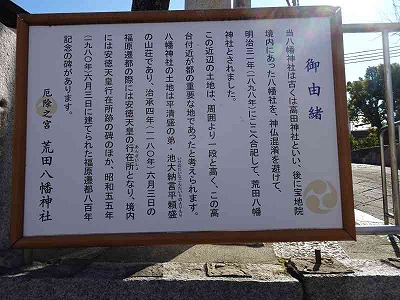 御由緒
当八幡神社は古くは高田神社といい、後に宝地院
境内にあった八幡社を、神仏混淆を避けて、
明治三一年(一八九八年)にここへ合祀して、荒田八幡
神社とされました。
この近辺の土地は、周囲より一段と高く、この高
台付近が都の重要な地であったと考えられます。
八幡神社の土地は平清盛の弟・池大納言平頼盛
の山荘であり、治承四年(一一八〇年)六月三日の
福原遷都の際には安徳天皇の行在所となり、境内
には安徳天皇行在所跡の碑のほか、昭和五五年
(一九八〇年)六月三日に建てられた福原遷都八百年
記念の碑があります。
厄除之宮 荒田八幡神社